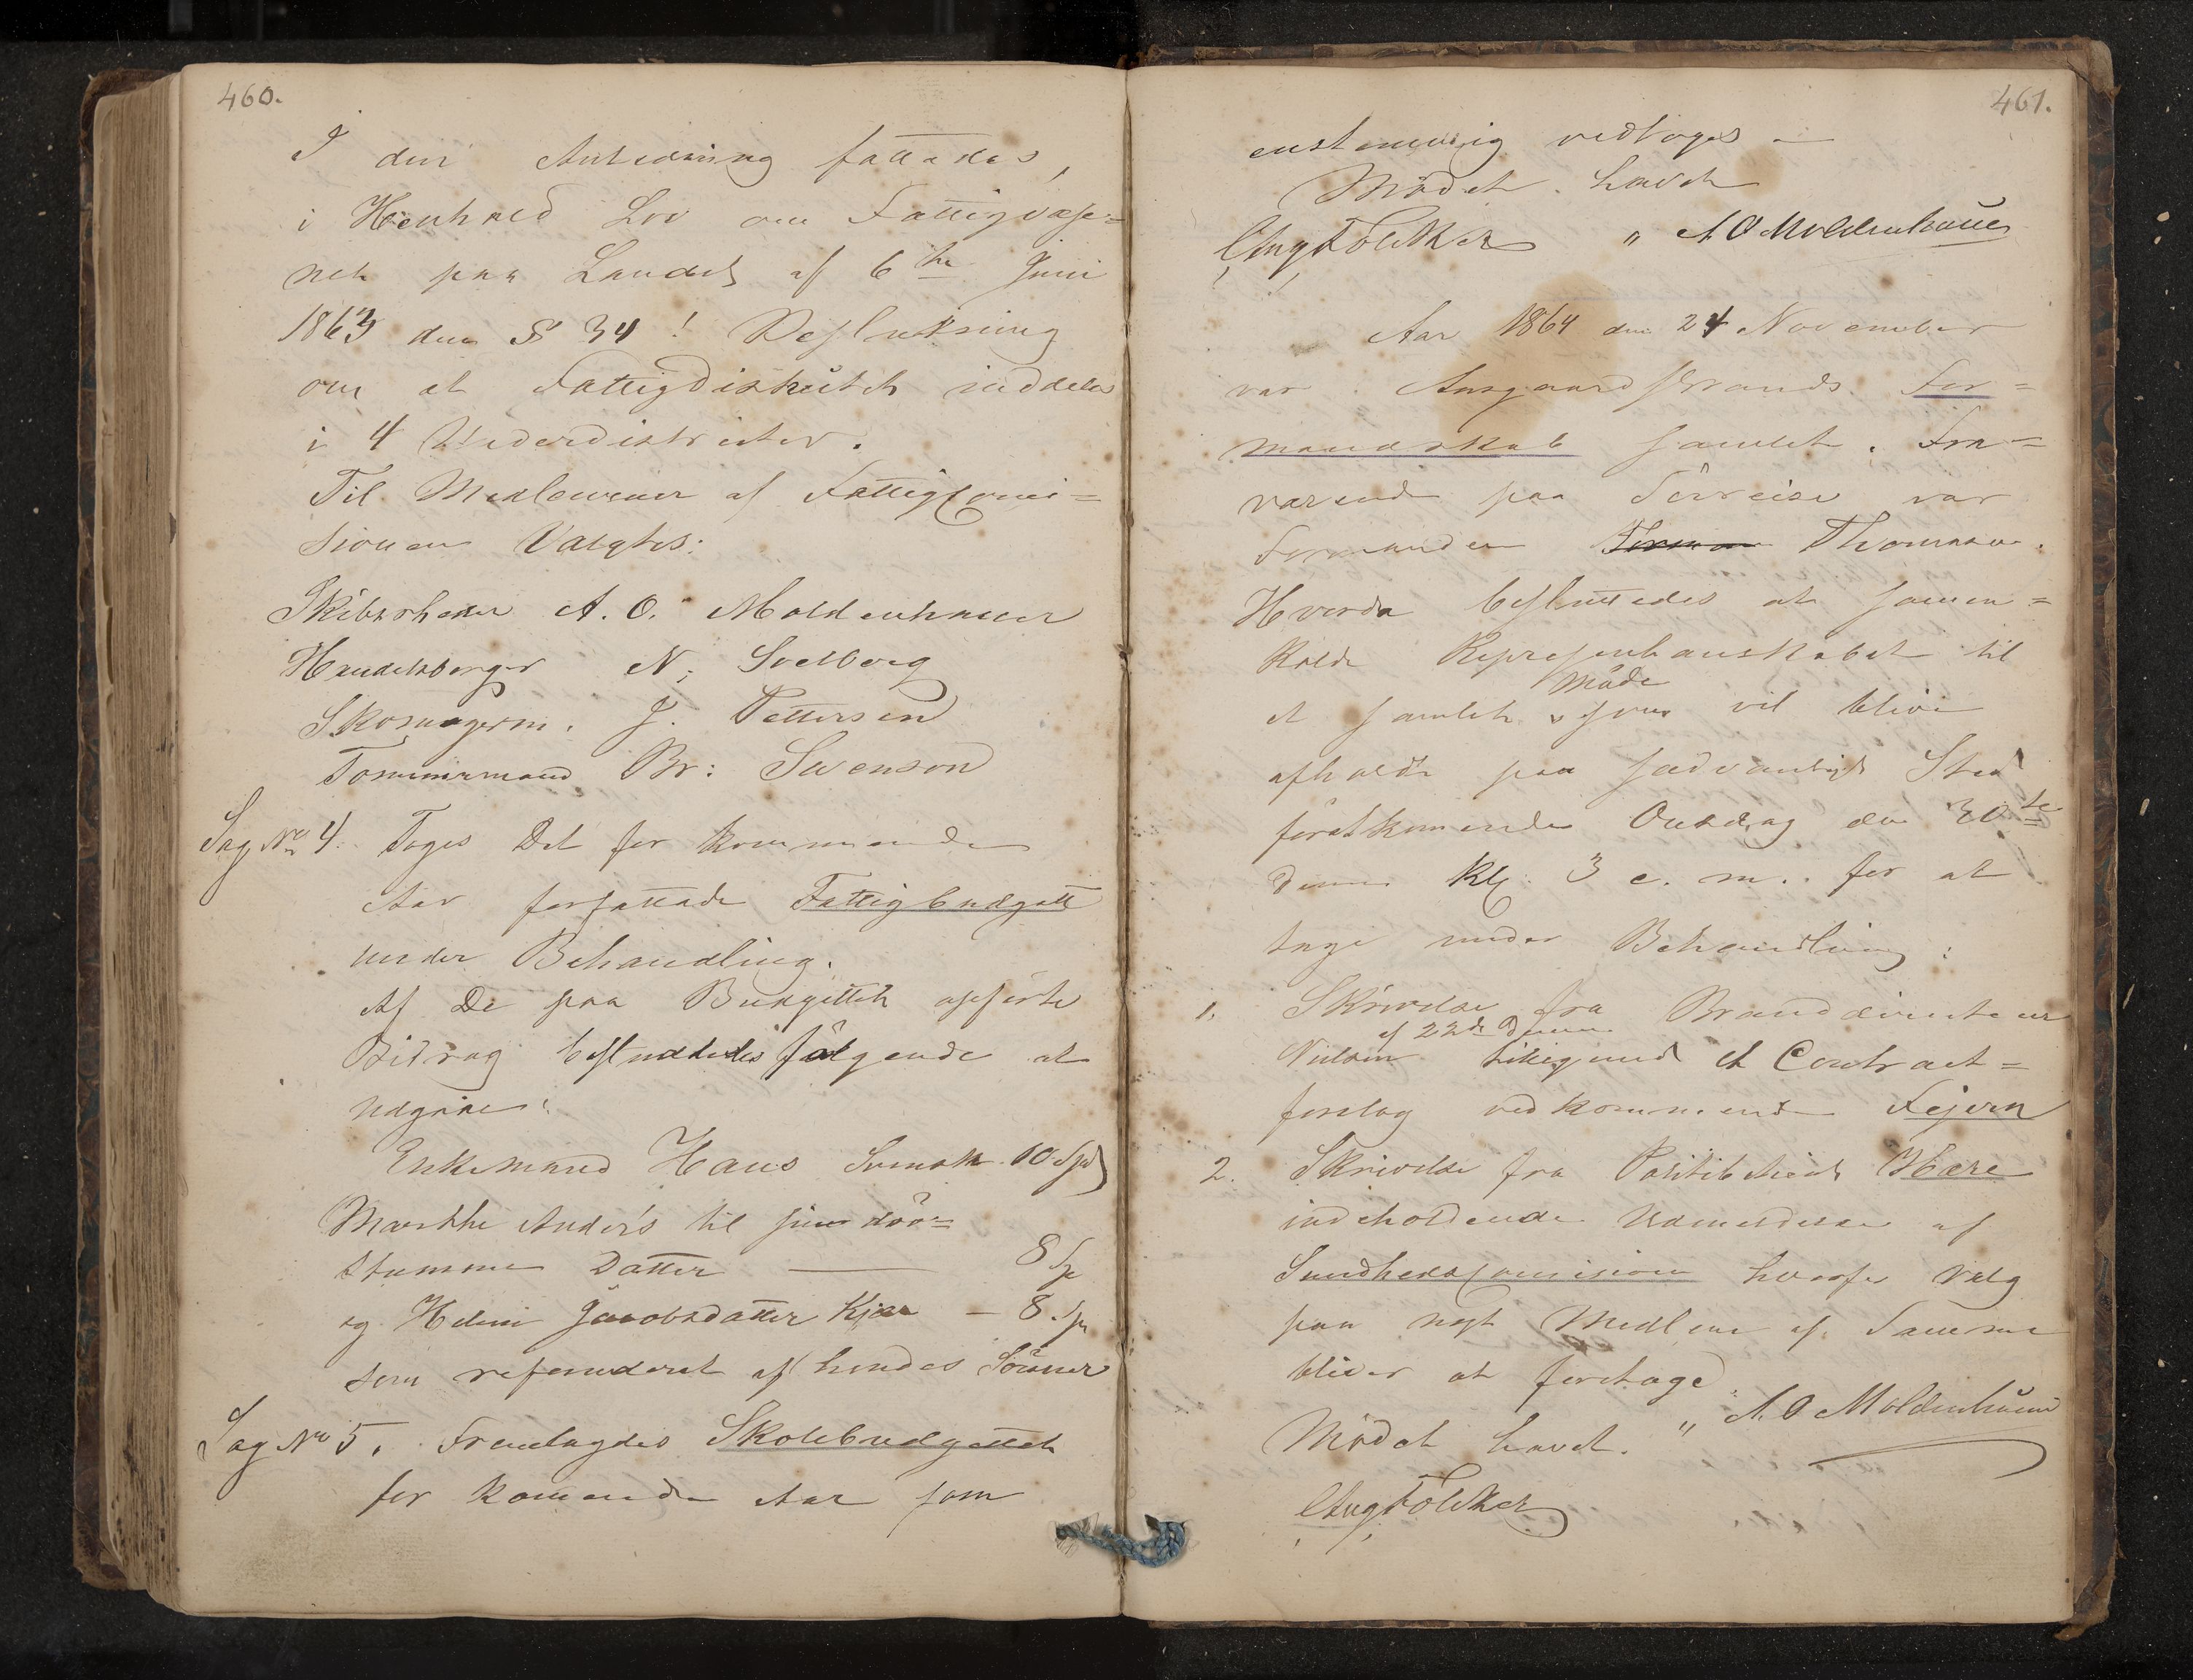 460.
I den Anledning fattedes,
i Henhold Lov om Fattigvæse=
net paa Landet af 6te Juni
1863 den § 34! Beslutning
om at Fattigdistrictet inddeles
i 4 Underdistricter.
Til Medlemmer af Fattigcomi=
sionen Valgtes:
Skibsrheder A. O. Moldenhauer
Handelsborger N. Soelberg
Skomagerm. J. Pettersen
Tømmermand Br: Swenson
Sag No 4. Toges Det for kommende
Aar forfattede Fattigbudgett
under Behandling.
Af De paa Budgettet opførte
Bidrag besluttedes følgende at
udgaae:
Enkemand Hans 10 Spd
Marthe Anders til sin døv=
stumme Datter — 8 Sp
og Helene Jacobsdatter Kjær — 8 Sp
som refunderet af hendes Sønner
Sag No 5. Fremlagdes Skolebudgettet
for komende Aar som
461.
enstemmig vedtoges
Mødet hævet
Aug Fölcker " A O Moldenhauer
Aar 1864 den 24 November
var Aasgaardstrands For=
mandskab samlet. Fra=
værende paa Søreise var
Formanden Forman Thomasen.
Hvorda besluttedes at samen=
kalde Representanskabet til
et samlet Møde som vil blive
afholdt paa sædvanligt Sted
førstkommende Onsdag den 30te
dennes Kl 3 e. m. for at
tage under Behandling:
1. Skrivelse fra Branddirecteur
Nielsen af 22de Dennes tilligemed et Contract=
forslag vedkommende Fejern
2. Skrivelse fra Politibetient Hære
indeholdende Udmeldelse af
Sundhedscomisionen hvorfor Valg
paa nyt Medlem af Samme
bliver at foretage.
Mødet hævet. " A. O Moldenhauer
Aug Fölcker